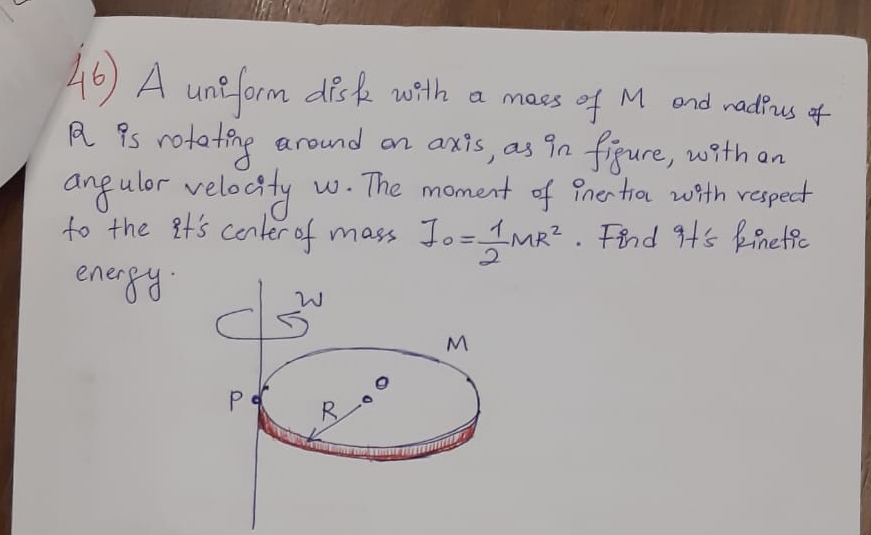 46) A uniform disk with a mass of M and radius of
R is rotating around an axis, as in figure, with an
angular velocity w. The moment of inertia with respect
to the it's center of mass I₀ = 1/2 MR². Find it's kinetic
energy.
w
M
P
O
R